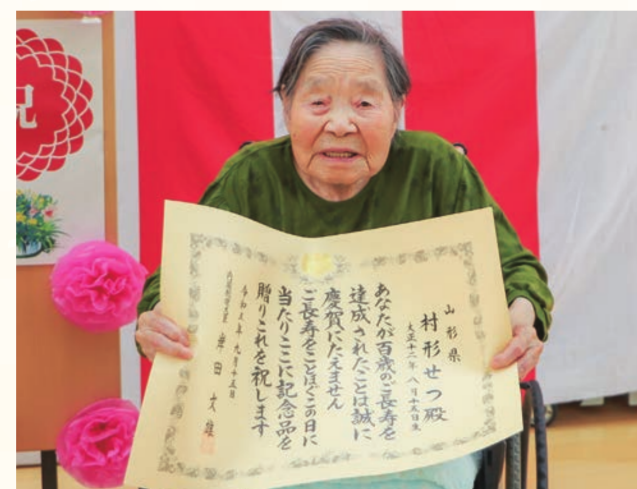 山形県
村形せつ殿
大正十二年八月十五日生
あなたが百歳のご長寿を
達成されたことは誠に
慶賀にたえません
ご長寿をことほぐこの日に
当たりここに記念品を
贈りこれを祝します
令和五年九月十五日
内閣総理大臣 岸田文雄
祝